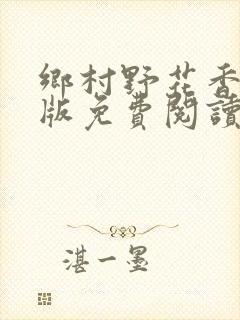 鄉村野花香
版免費閱讀
湛一墨